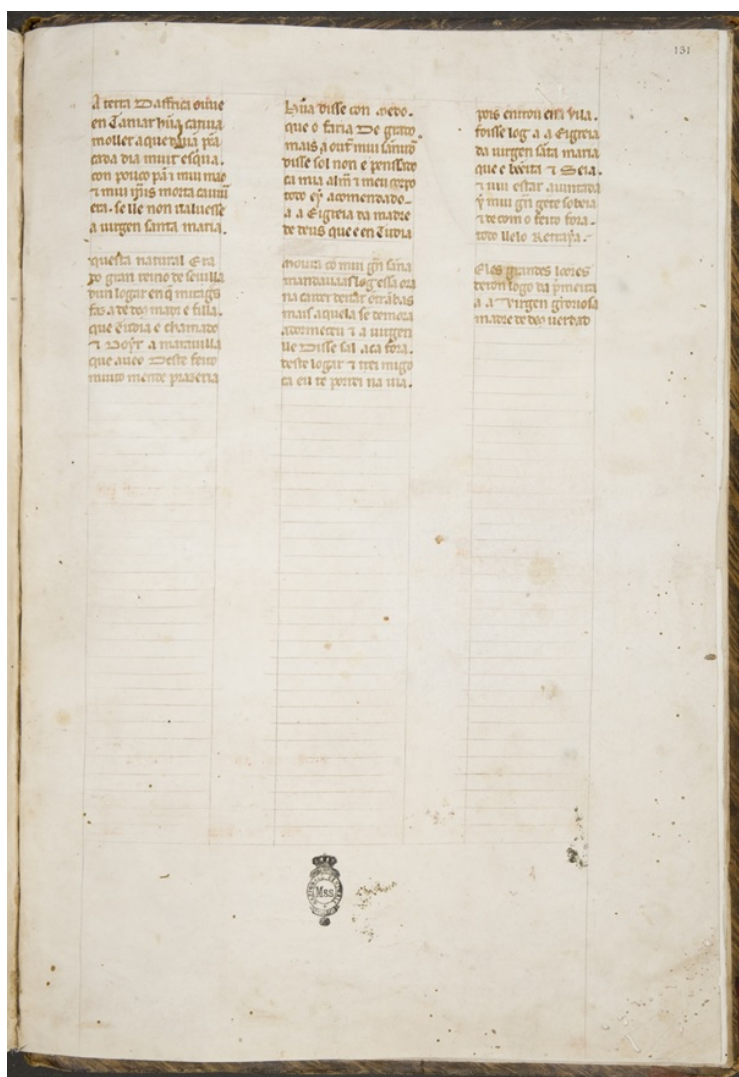 131
A terra Daffrica ouue
en Tanjar hũa catiua
moller a que dauã pẽa
cada dia muit esquiua.
con pouco pã ⁊ mui mao
⁊ mui mais morta
era. se lle non ualuesse
a uirgen santa maria.
questa natural Era
do gran reino de seuilla
dun logar en q̄ miragẽs
faz a de dos madr e filla.
que Tudia e chamado
⁊ Doyr a marauilla
que aueo Deste feito
muito mente prazeria
Hũa disse con medo.
que o faria De grado.
mais a outr mui sannud
disse sol non e penssado
ca mia alm ⁊ meu corpo
todo ey acomendado
a a Eigreia da madre
de deus que e en Tudia
moura cõ mui gn̄ sana
mandaua log essa ora
mais aquela se demora
a uirgen
lle Disse sal aca fora.
deste logar ⁊ irei migo
ca eu te porrei na uia.
pois entrou ena uila.
foisse log a a Eigreia
da uirgen sãta maria
que e bẽeita ⁊ Seia.
⁊ uiu estar
y mui gn̄ gẽte sobeia
⁊ de com o feito fora.
todo llelo Retraya.
Eles grandes loores
deron logo da p̃meira
a a Uirgen gloriosa
madre de dos uerdad
Mss.